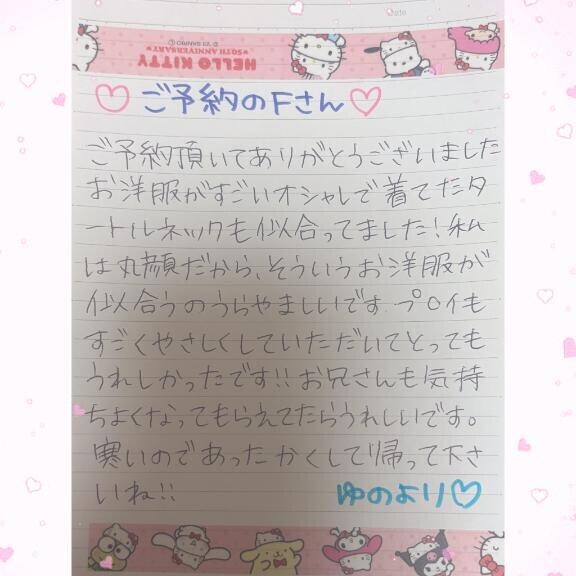 Date
HELLO KITTY
50TH ANNIVERSARY
♡ご予約のFさん♡
ご予約頂いてありがとうございました
お洋服がすごいオシャレで着てたタ
ートルネックも似合ってました!私
は丸顔だから、そういうお洋服が
似合うのうらやましいです プロイも
すごくやさしくしていただいてとっても
うれしかったです!!お兄さんも気持
ちよくなってもらえてたらうれしいです。
寒いのであったかくして帰って下さ
いね!!
ゆのより♡